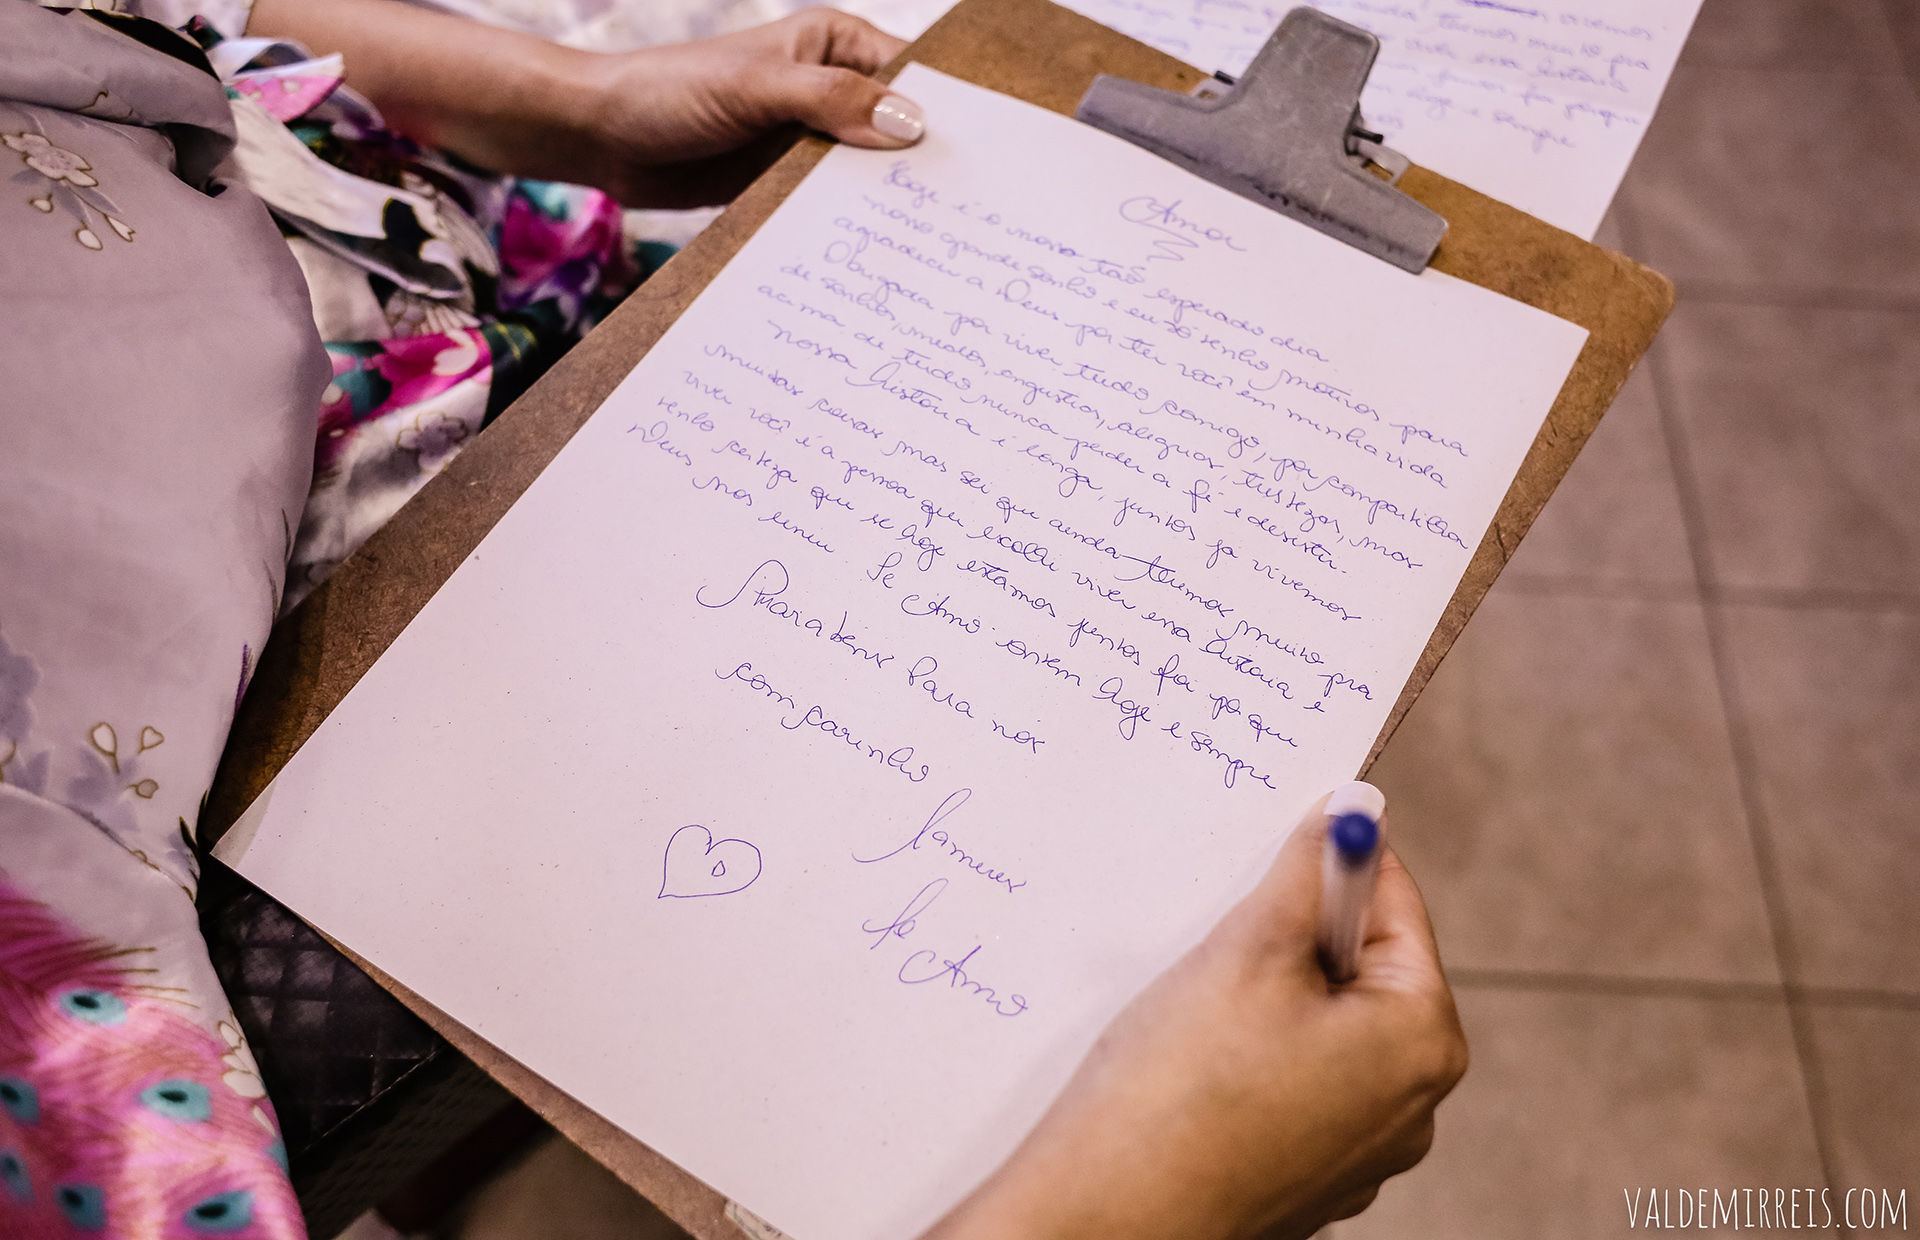 Amor
Hoje é o nosso tão esperado dia
nosso grande sonho e eu só tenho motivos para
agradecer a Deus por ter você em minha vida
Obrigada por viver tudo comigo, por compartilha
de sonhos, medos, angustias, alegrias, tristezas, mas
acima de tudo nunca perder a fé e desistir.
Nossa história é longa, juntos já vivemos
muitas coisas mas sei que ainda temos muito pra
viver você é a pessoa que escolhi viver essa história e
tenho certeza que se hoje estamos juntos foi porque
Deus nos uniu. Te Amo ontem hoje e sempre
Parabéns Para nós
com carinho
Te
Amo
temos muito pra
viver essa história
juntos foi porque
hoje e sempre
VALDEMIRREIS.COM